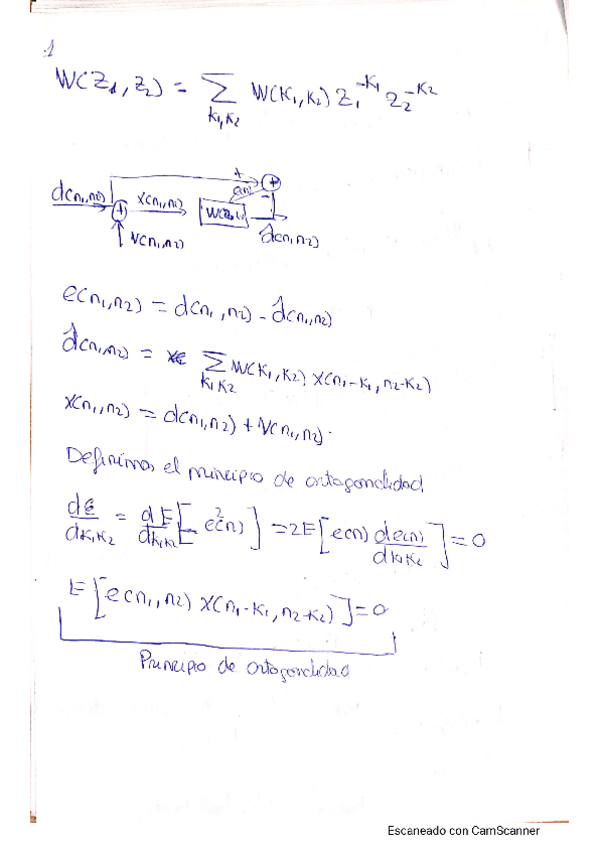 1
W(Z1, Z2) = Σ W(K1, K2) Z1^-K1 Z2^-K2
K1, K2
d(n1,n2) X(n1,n2) W(Z1, + e(n) + -
+ V(n1,n2) d̂(n1,n2)
e(n1,n2) = d(n1,n2) - d̂(n1,n2)
d̂(n1,n2) = Σ W(K1,K2) X(n1-K1, n2-K2)
K1 K2
X(n1,n2) = d(n1,n2) + V(n1,n2).
Definimos el principio de ortogonalidad.
dE/dK1K2 = dE/dK1K2 [e²(n)] = 2E[e(n) de(n)/dK1K2] = 0
E[e(n1,n2) X(n1-K1, n2-K2)] = 0
Principio de ortogonalidad
Escaneado con CamScanner